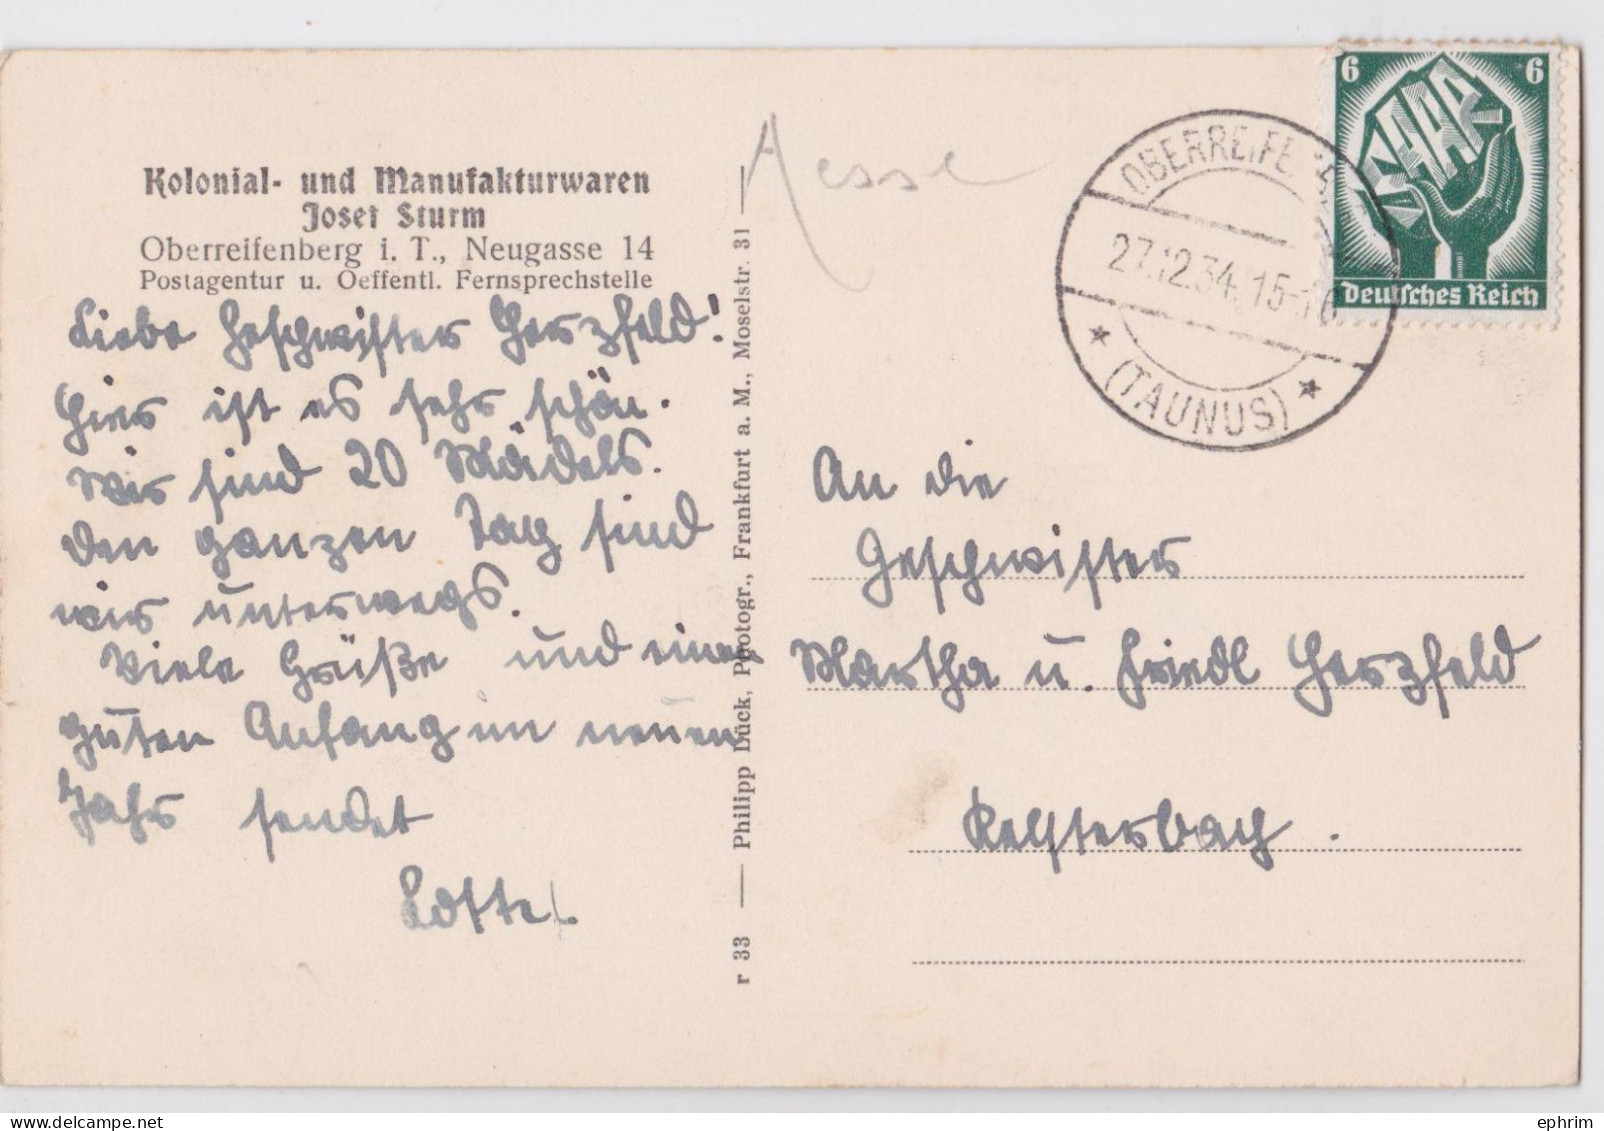 Kolonial- und Manufakturwaren
Josef Sturm
Oberreifenberg i. T., Neugasse 14
Postagentur u. Oeffentl. Fernsprechstelle
Liebe Geschwister Herzfeld!
Hier ist es sehr schön.
Wir sind 20 Mädels.
Den ganzen Tag sind
wir unterwegs.
Viele Grüße und einen
guten Anfang im neuen
Jahr sendet
Lotte.
r 33 — Philipp Dück, Photogr., Frankfurt a. M., Moselstr. 31 —
Hesse
OBERREIFENBERG
27.12.34.15-16
(TAUNUS)
6 6
SAAR
Deutsches Reich
An die
Geschwister
Martha u. Friedl Herzfeld
Kelsterbach.
ephrim